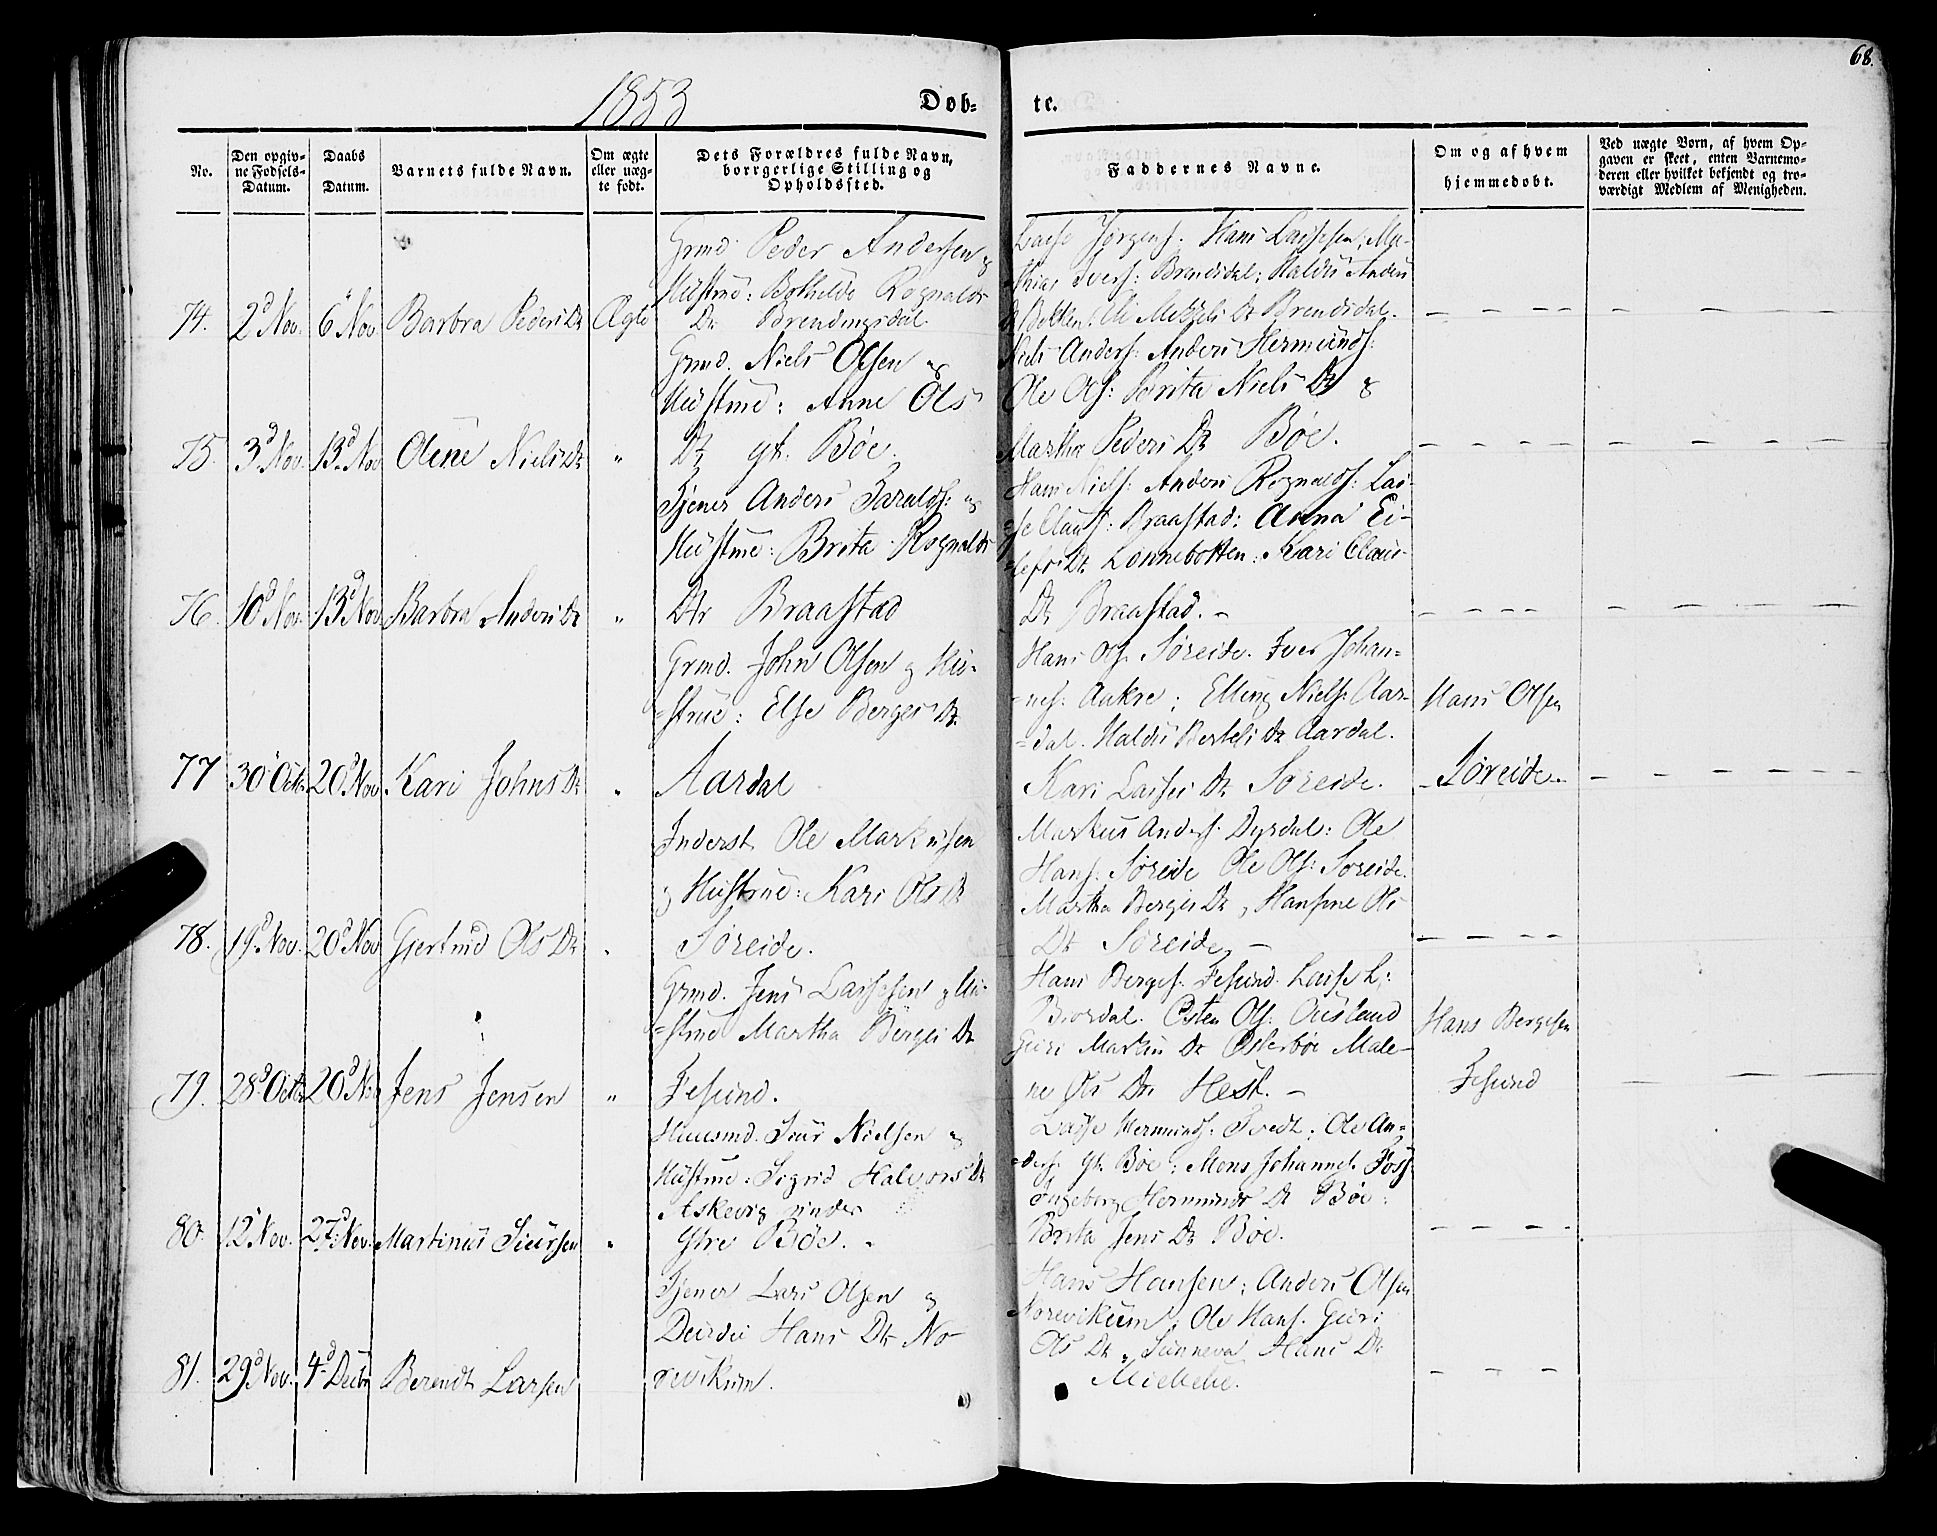 68.
1853
Døb-
te.
No.
Den opgiv-
ne Fødsels-
Datum.
Daabs
Datum.
Barnets fulde Navn.
Om ægte
eller uæg-
te født.
Dets Forældres fulde Navn,
borgerlige Stilling og
Opholdssted.
Faddernes Navne.
Om og af hvem
hjemmedøbt.
Ved uægte Børn, af hvem Op-
gaven er skeet, enten Barnemo-
deren eller hvilket bekjendt og tro-
værdigt Medlem af Menigheden.
74. 2d Nov. 6 Nov Barbra Peders Dr Ægte
Grmd Peder Andersen og
Hustrue: Bothilde Rognalds
Dr Brendingsdal
Lasse Jørgens. Hans Lassesen, Ma-
thias Ivers: Brendsdal; Haldis Anders
Dr Bekken: Dr Brendsdal.
75. 3d Nov. 13d Nov Oline Niels Dr "
Grmd. Niels Olsen og
Hustrue: Anne Ols
Dr yt. Bøe.
Niels Anders: Anders Hermunds:
Ole Ols: Brita Niels Dr og
Martha Peders Dr Bøe.
76. 10d Nov. 13d Nov. Barbra Anders Dr "
Tjener Anders Haralds: og
Hustrue: Brita Rognalds
Dtr Braastad
Hans Niels: Anders Rognalds: Las-
se Claus: Braastad: Anna Ei-
lefs Dr Lonnebotten: Kari Claus-
Dr Braastad. -
77 30 Octb 20d Nov Kari Johns Dr "
Grmd. John Olsen og Hu-
strue: Else Berges Dr
Aardal
Hans Ols. Søreide. Iver Johan-
nes: Aakre; Elling Niels: Aar-
dal. Haldis Bertels Dr Aardal.
Kari Lasses Dr Søreide.
Hans Olsen
Søreide.
78. 19d Nov. 20d Nov Gjertrud Ols Dr "
Inderst Ole Markusen
og Hustrue: Kari Ols Dr
Søreide.
Markus Anders: Dyrdal: Ole
Hans: Søreide Ole Ols: Søreide.
Martha Berges Dr og Hansine Ols
Dr Søreide. -
79. 28d Octb 20d Nov Jens Jensen "
Grmd. Jens Lassesen og Hu-
strue Martha Berges Dr
Fesund.
Hans Berges. Fesund. Lasse L:
Osten Ols: Ousland
Guri Markus Dr Osterbøe Male-
ne Ols Dr Hest. -
Hans Bergesen
Fesund
80. 12 Nov. 27d Nov. Martinus Siursen "
Huusmd. Siur Nielsen og
Hustrue: Sigrid Halvors Dr
Askevig under
Ytre Bøe.
Lasse Hermunds: Tvedt; Ole An-
ders yt. Bøe; Mons Johannes. Foss
Ingeborg Hermunds Dr Bøe:
Brita Jens Dr Bøe.
81. 29d Nov. 4d Decbr Berendt Larsen
Tjener Lars Olsen og
Hans Dtr No-
revikum.
Hans Hansen; Anders Olsen
Norevikum; Ole Hans. Guri
Ols Dr, Sunneva Hans Dr